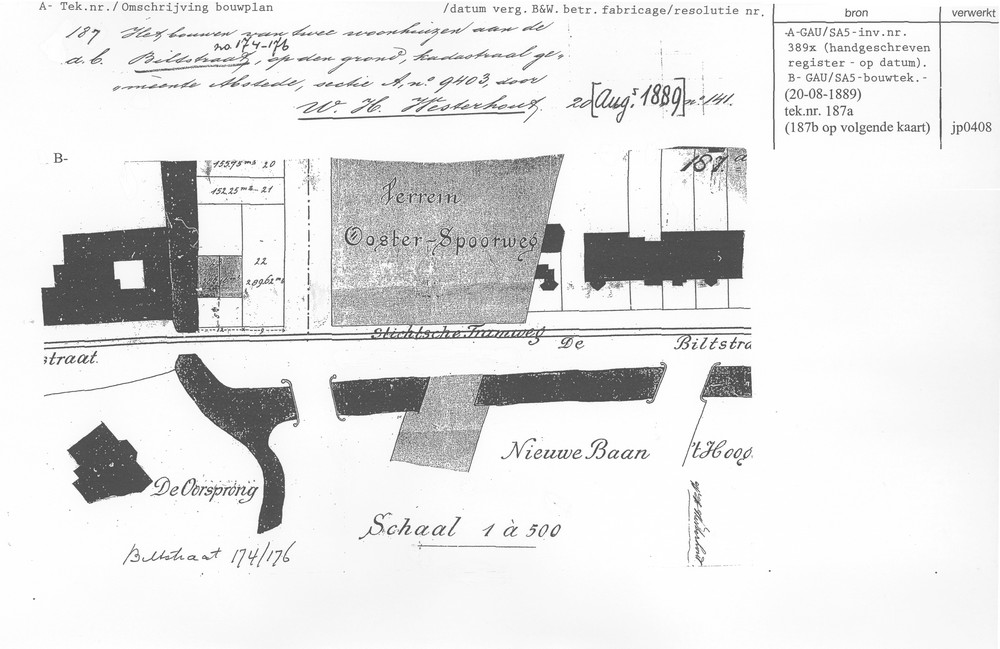 A- Tek.nr./Omschrijving bouwplan
/datum verg. B&W. betr. fabricage/resolutie nr.
bron
verwerkt
187 Het bouwen van twee woonhuizen aan de
no 174-176
d.b. Biltstraat, op den grond, kadastraal ge-
meente Abstede, sectie A, no. 9403, door
W. H. Westerhout. 20 [Aug.s 1889] no 141.
-A-GAU/SA5-inv.nr.
389x (handgeschreven
register - op datum).
B- GAU/SA5-bouwtek.-
(20-08-1889)
tek.nr. 187a
(187b op volgende kaart)
jp0408
B-
153,95 m2 20
152,25 m2 - 21
22
289,62 m2
Terrein
Ooster-Spoorweg
187 a
Stichtsche Tramweg
straat.
De
Biltstra
De Oorsprong
Nieuwe Baan
't Hoog.
Schaal 1 à 500
Biltstraat 174/176